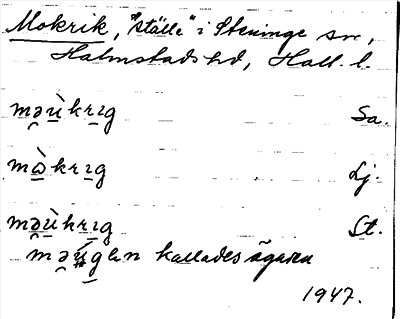 Mokrik, "ställe" i Steninge sn,
Halmstads hd, Hall. l.
mə̯ù̲krɪ̲g Sa.
mɔ̲̀krɪ̲g Lj.
mə̯ù̲krɪ̲g St.
mə̯ú̲gən kallades ägaren
1947.